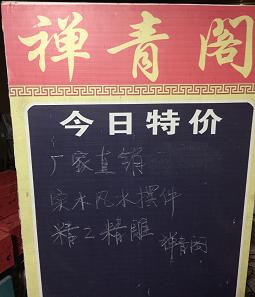 禅青阁
今日特价
厂家直销
实木风水摆件
精工精雕 禅青阁